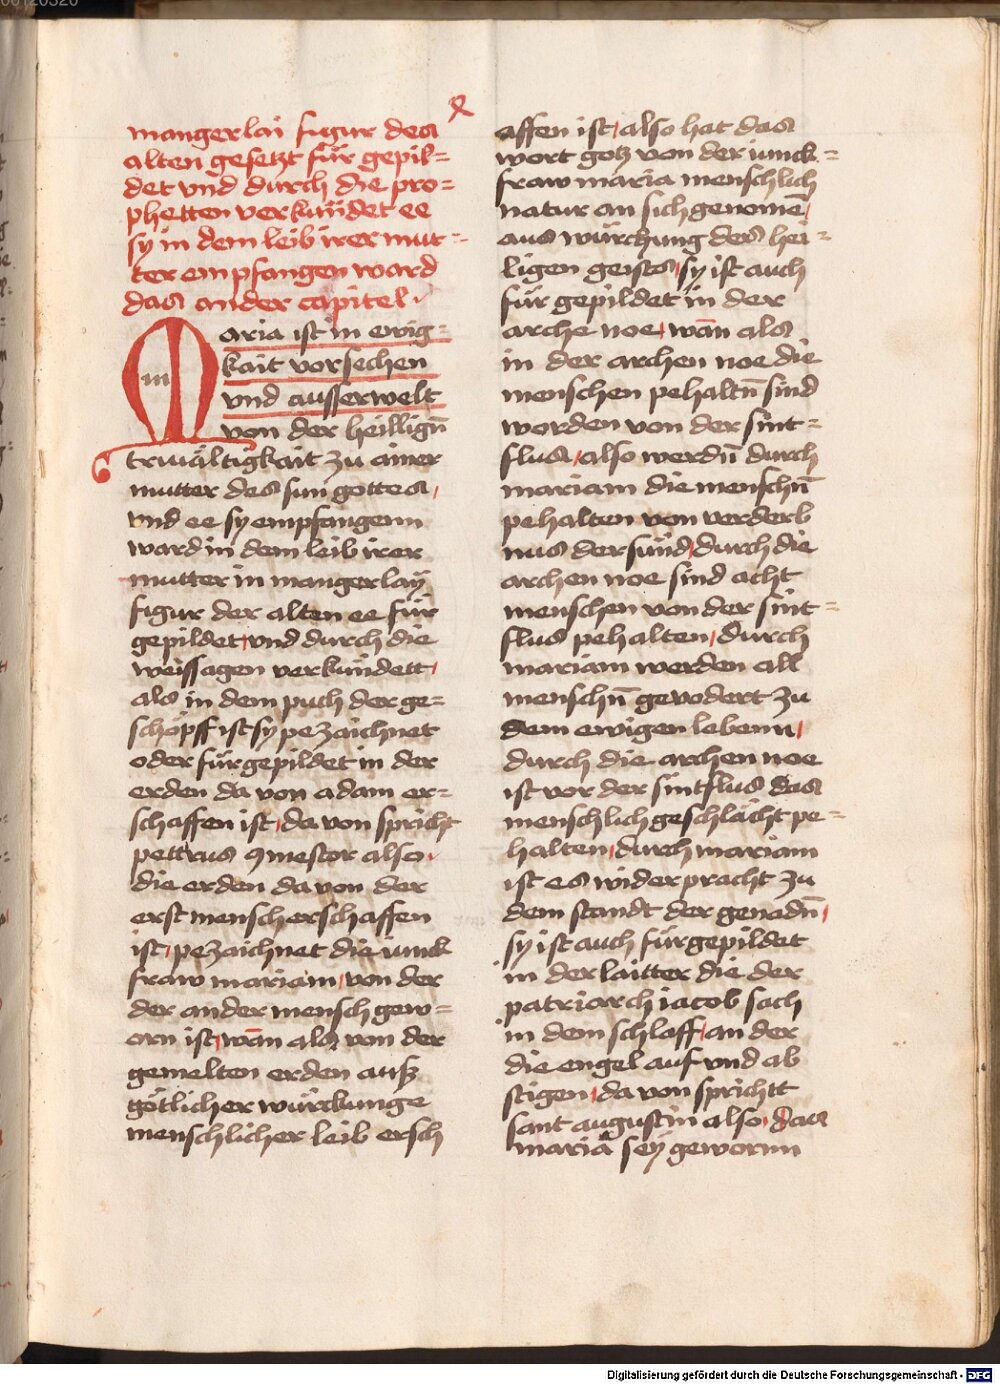 00120320
mangerlai figur des
alten gesetzt für gepil=
det vnd durch die pro=
phetten verkündet ee
sy in dem leib irer mut=
ter empfangen ward
das ander capitel
Maria ist in ewig=
kait vorsechen
vnd ausserwelt
von der heilligñ
triuältigkait zu ainer
mutter des sun gottes
vnd ee sy empfangenn
ward in dem leib irer
mutter in mangerlaÿ
figur der alten ee für
gepildet vnd durch die
weissagen verkündett
als in dem puch der ge=
schöpff ist sy pezaichnet
oder für gepildet in der
erden da von adam er=
schaffen ist da von spricht
pettrus 9mestor also
die erden da von der
erst mensch erschaffen
ist pezaichnet die iunck
fraw mariam von der
der ander mensch gew=
orn ist wān als von der
gemelten erden auß
götlicher würckunge
menschlicher leib ersch
affen ist also hat das
wort gotz von der iunck=
fraw maria menschlich
natur an sich genomē
aus würckung des hei=
ligen geists sy ist auch
für gepildet in der
arche noe wān als
in der archen noe die
menschen pehaltñ sind
worden von der sint=
flus also werdñ durch
mariam die menschñ
pehalten von verderb
nus der sünd durch die
archen noe sind acht
menschen von der sint=
flus pehalten durch
mariam werden all
menschñ gevodert zu
dem ewigen lebenn
durch die archen noe
ist vor der sintflus das
menschlich geschlächt pe=
halten durch mariam
ist es wider pracht zu
dem standt der genadñ
sy ist auch für gepildet
in der laitter die der
patriarch iacob sach
in dem schlaff an der
die engel auf vnd ab
stigen da von sprichtt
sant augustin also das
maria seÿ gewornn
Digitalisierung gefördert durch die Deutsche Forschungsgemeinschaft - DFG